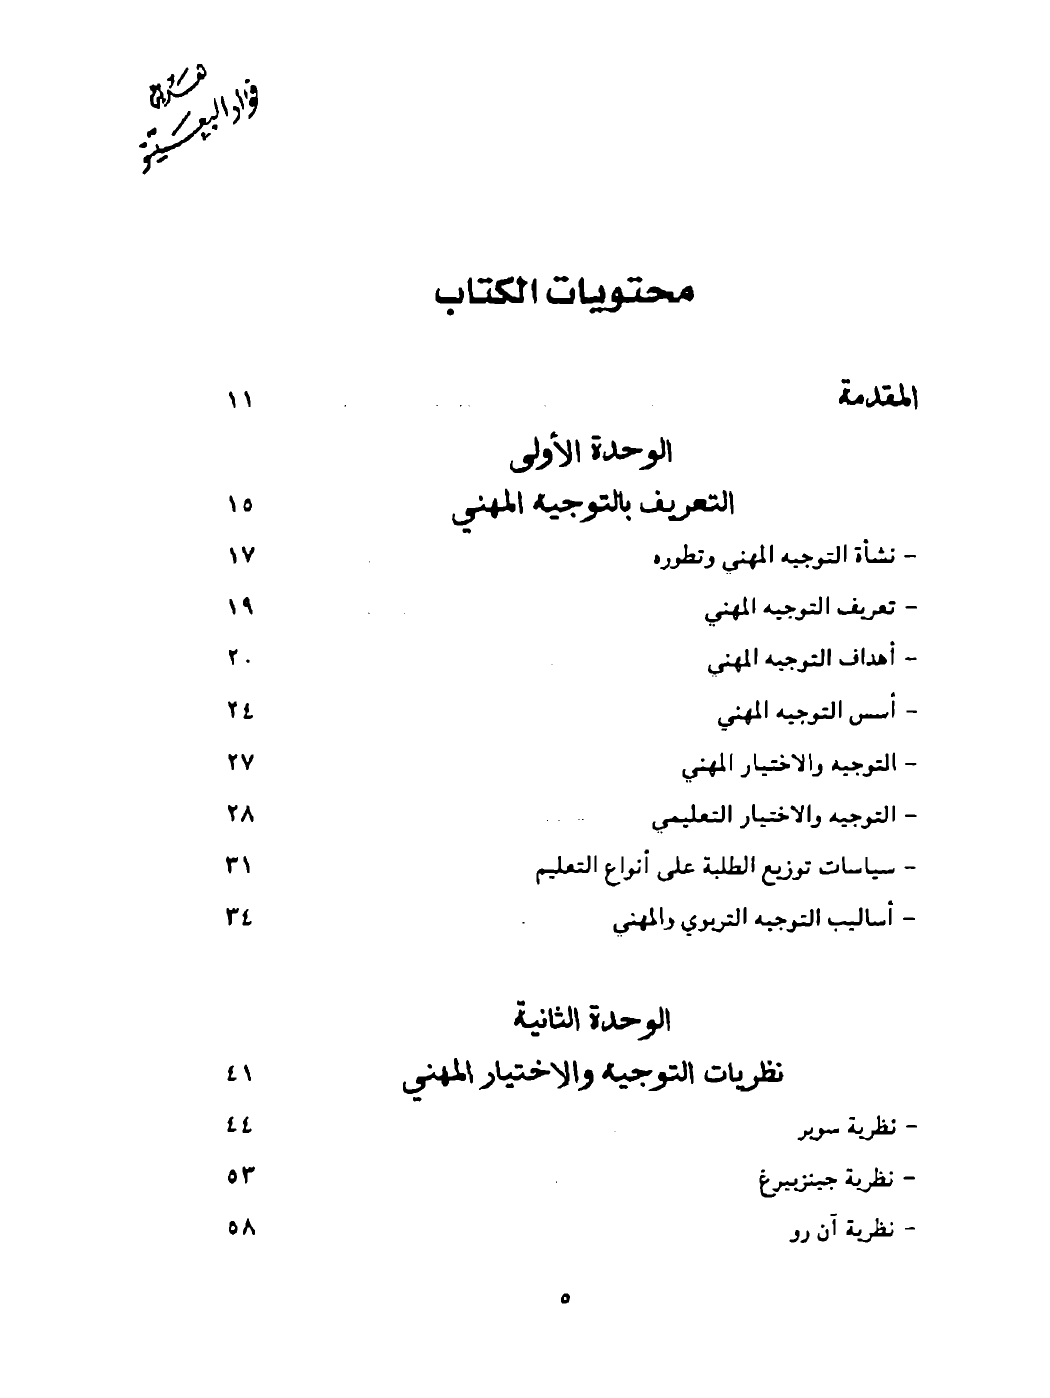 فؤاد البعيتة
محتويات الكتاب
المقدمة ١١
الوحدة الأولى
التعريف بالتوجيه المهني ١٥
- نشأة التوجيه المهني وتطوره ١٧
- تعريف التوجيه المهني ١٩
- أهداف التوجيه المهني ٢٠
- أسس التوجيه المهني ٢٤
- التوجيه والاختيار المهني ٢٧
- التوجيه والاختيار التعليمي ٢٨
- سياسات توزيع الطلبة على أنواع التعليم ٣١
- أساليب التوجيه التربوي والمهني ٣٤
الوحدة الثانية
نظريات التوجيه والاختيار المهني ٤١
- نظرية سوبر ٤٤
- نظرية جينزبيرغ ٥٣
- نظرية آن رو ٥٨
٥